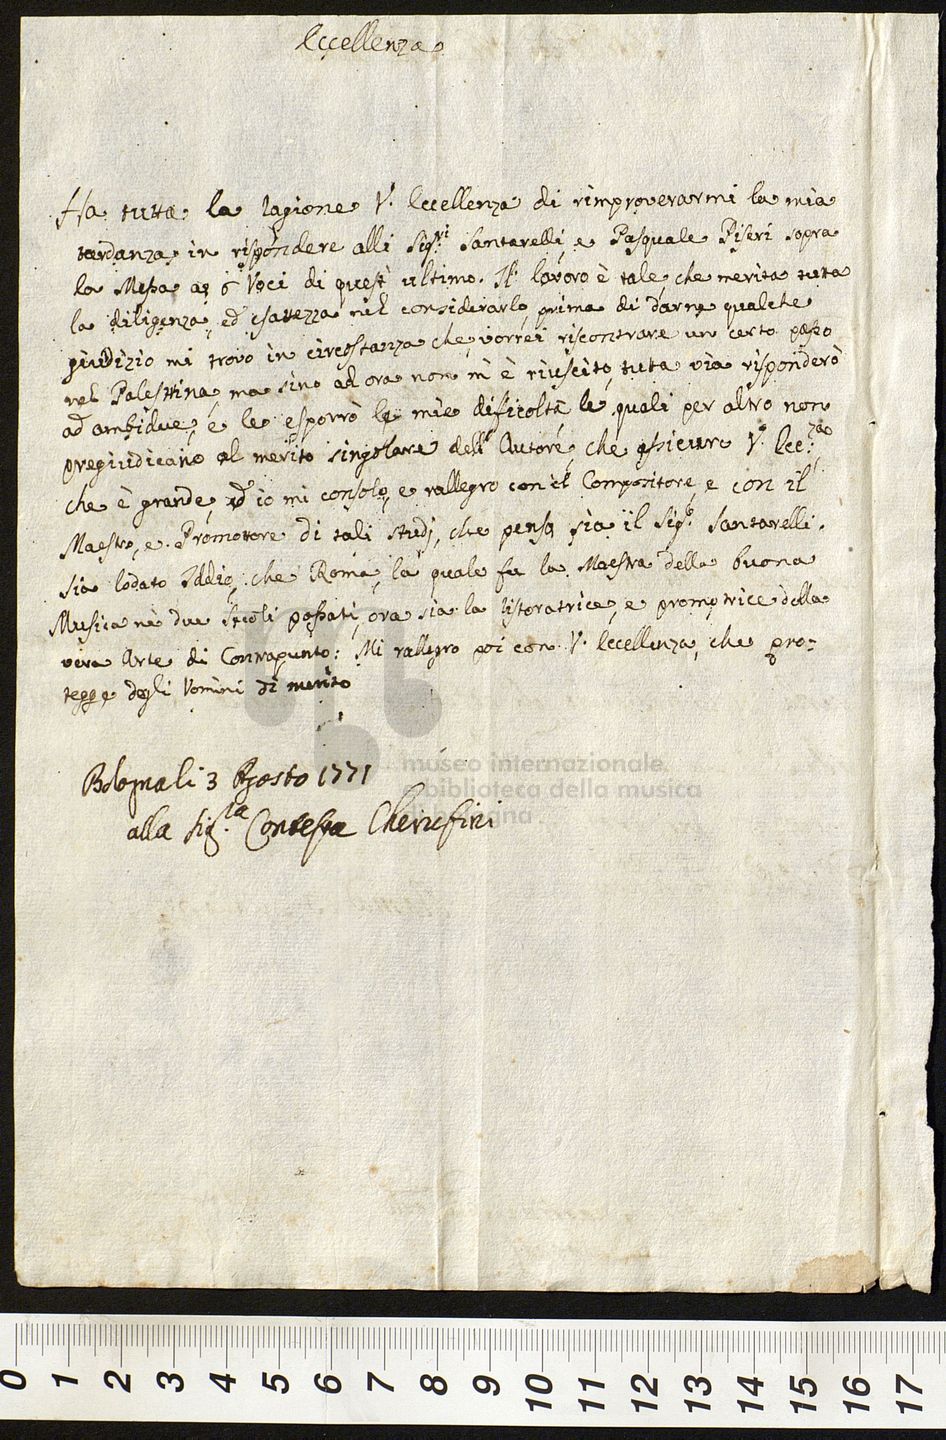 Eccellenza
Ha tutta la ragione V. Eccellenza di rimproverarmi la mia
tardanza in rispondere alli Sig.ri Santarelli, e Pasquale Piseri sopra
la Messa a 6 Voci di quest' ultimo. Il lavoro è tale, che merita tutta
la diligenza, ed esattezza nel considerarlo, prima di darne qualche
giudizio mi trovo in circostanza che vorrei riscontrare un certo passo
nel Palestrina, ma sino ad ora non m' è riuscito, tutta via risponderò
ad ambidue, e le esporrò le mie dificoltà le quali per altro non
pregiudicano al merito singolare dell' Autore, che assicuro V. Ecc.za
che è grande, ed io mi consolo, e rallegro con il Compositore, e con il
Maestro, e Promotore di tali studj, che penso sia il Sig.r Santarelli.
Sia lodato Iddio, che Roma, la quale fu la Maestra della buona
Musica nè due secoli passati, ora sia la ristoratrice, e promotrice della
vera Arte di Contrapunto: Mi rallegro poi con V. Eccellenza, che pro-
tegge degli Uomini di merito
Bologna li 3 Agosto 1771
alla Sig.ra Contessa Cherufini
museo internazionale
e biblioteca della musica
di bologna
0 1 2 3 4 5 6 7 8 9 10 11 12 13 14 15 16 17